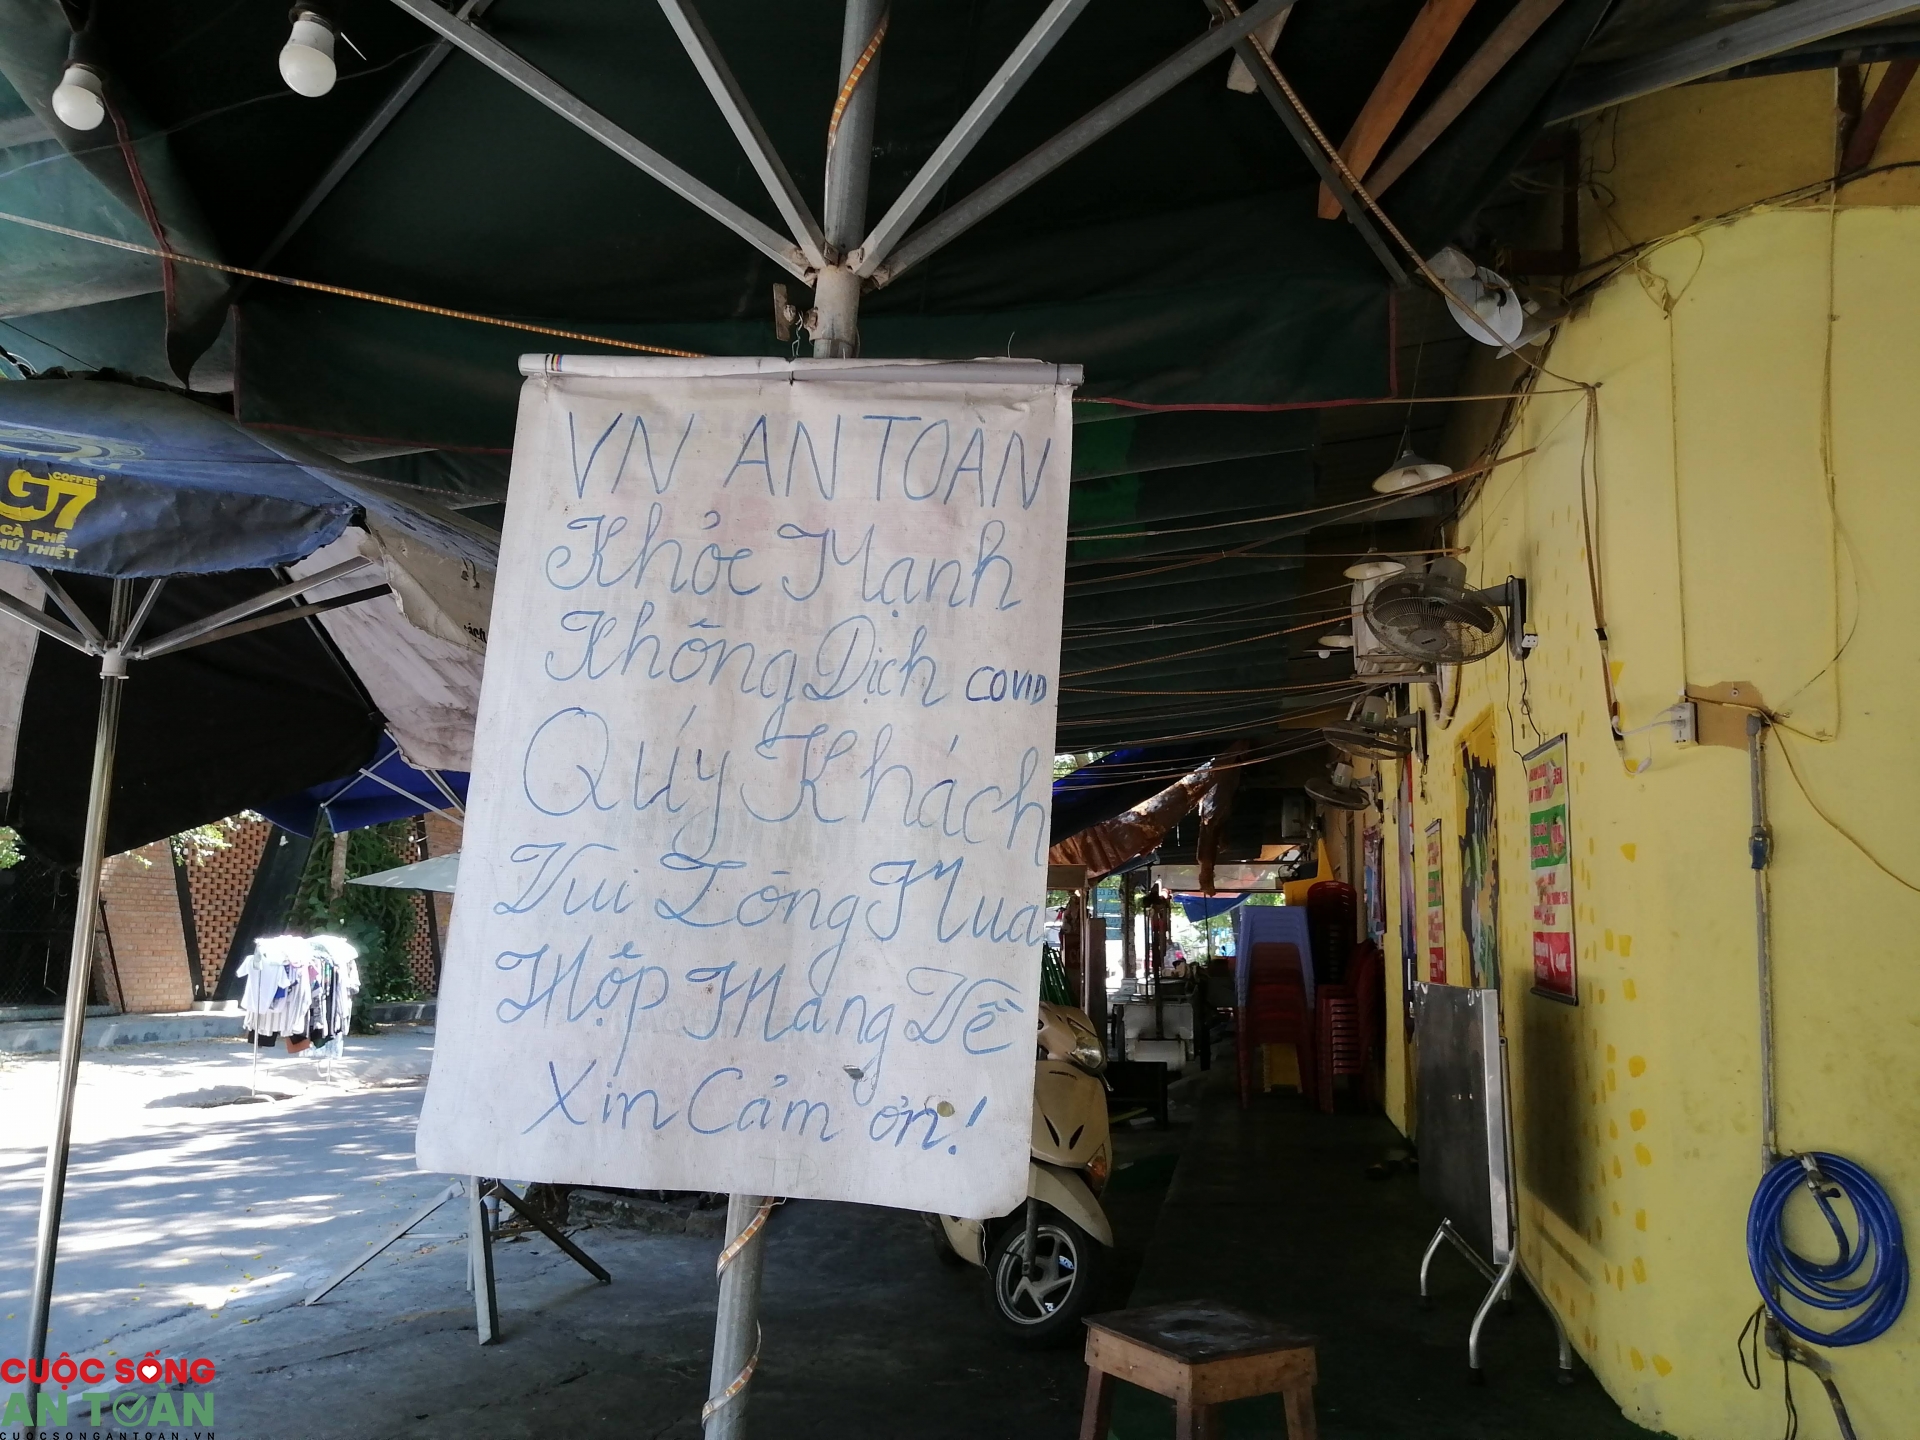 VN AN TOÀN
Khỏe Mạnh
Không Dịch COVID
Quý Khách
Vui Lòng Mua
Hộp Mang Về
Xin Cảm ơn!
G7
COFFEE
CÀ PHÊ
THIỆT
CUỘC SỐNG
AN TOÀN
CUOCSONGANTOAN.VN